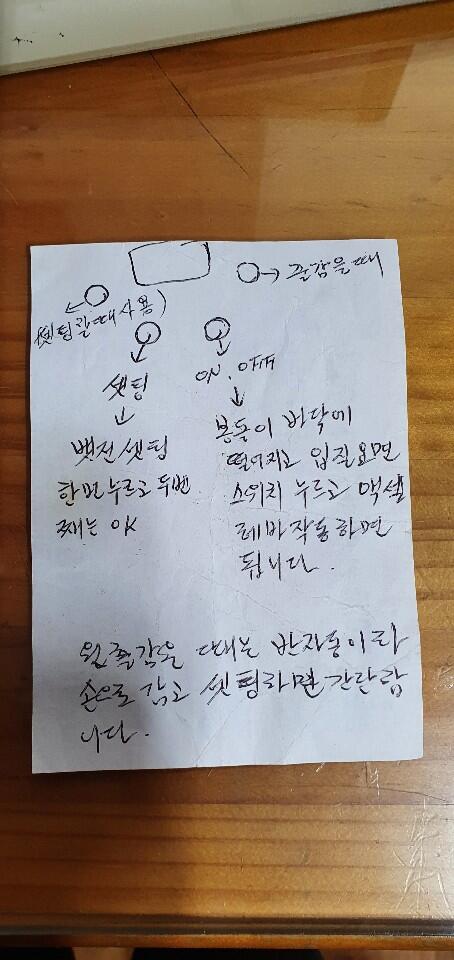 → 줄감을때
(셋팅할때사용)
셋팅
뱃전셋팅
한번누르고 두번
째는 OK
ON. OFF
봉돌이 바닥에
떨어지고 입질오면
스위치 누르고 액셀
레바작동하면
됩니다.
원줄감을 때는 반자동이라
손으로 감고 셋팅하면 간단함
니다.